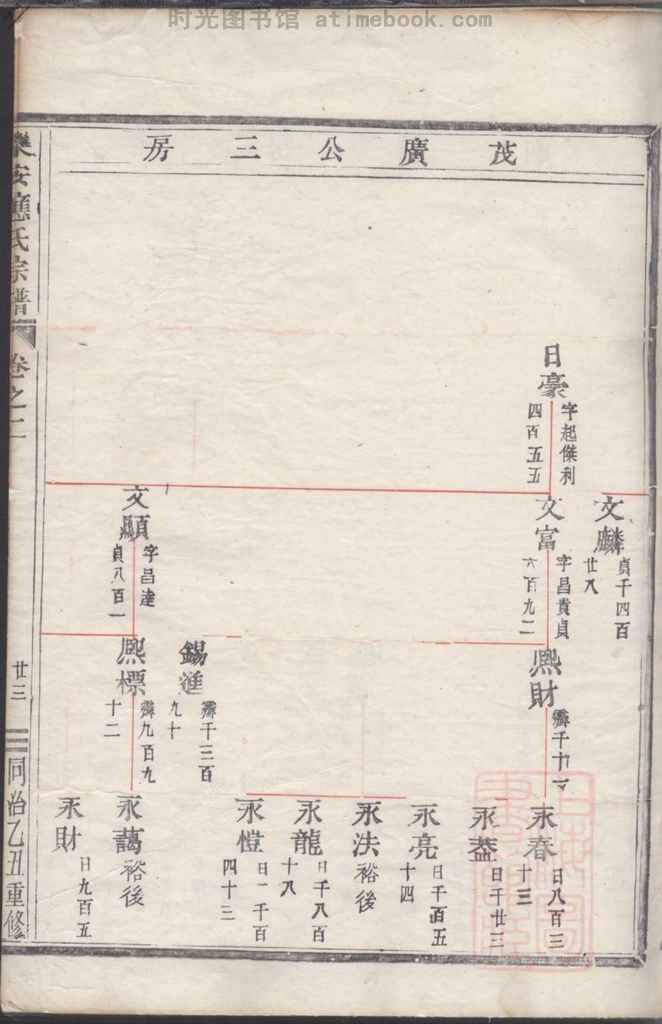 时光图书馆 - atimebook.com
茂廣公三房
日豪
字起傑利
四百五五
文麟
貞千四百
廿八
文富
字昌貴貞
六百九二
文顯
字昌達
貞八百一
熙財
霽千十一
錫進
霽千三百
九十
熙標
霽九百九
十二
永春
日八百三
十三
永益
日千廿三
永亮
日千百五
十四
永法
裕後
永龍
日千八百
十八
永愷
日一千百
四十三
永藹
裕後
永財
日九百五
樂安應氏宗譜
卷之二
廿三
同治乙丑重修